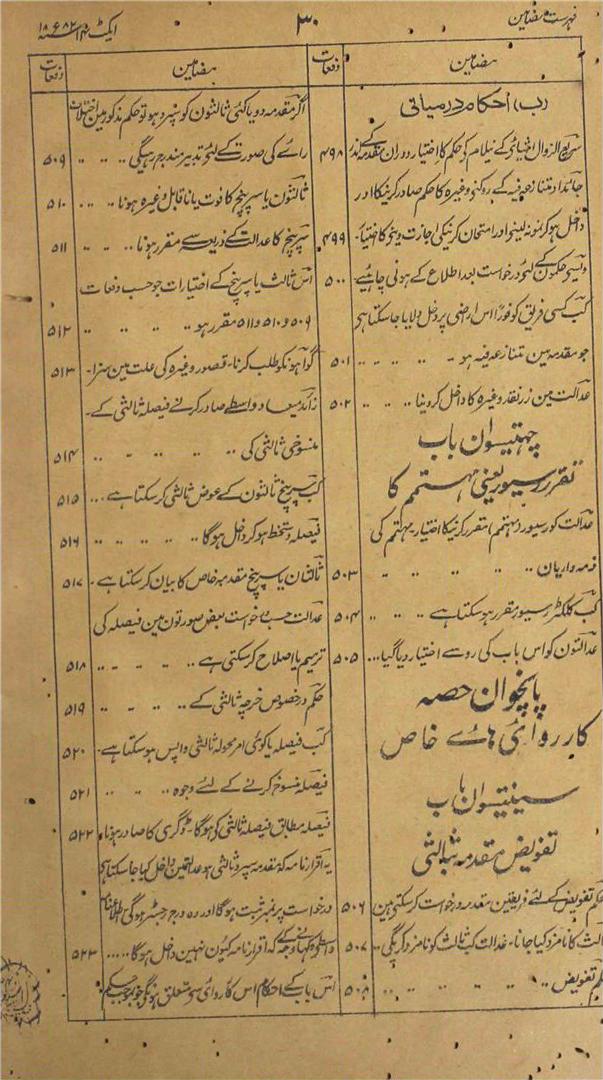 فہرست مضامین
۳۰
ایکٹ ۱۴ سنہ ۱۸۸۲ع
مضامین
دفعات
(ب) احکام درمیانی
سریع الزوال اشیائی کے نیلام کی حکم کا اختیار دوران مقدمہ کے اندر
۴۹۸
جائداد متنازعہ فیہ کے روکنی وغیرہ کا حکم صادر کرنیکا اور
داخل ہو کر نمونہ لینی اور امتحان کرنیکی اجازت دینی کا اختیار -
۴۹۹
وایسی حکمون کے لئو درخواست بعد اطلاع کے ہونی چاہئیے -
۵۰۰
کب کسی فریق کو فوراً اس اراضی پر دخل دلایا جا سکتا ہی
جو مقدمہ مین متنازعہ فیہ ہو
۵۰۱
عدالت مین زر نقد وغیرہ کا داخل کر دینا
۵۰۲
چھتیسوان باب
تقرر رسیور یعنی مہتمم کا
عدالت کو رسیور و مہتمم مقرر کرنیکا اختیار - مہتمم کی
ذمہ داریان
۵۰۳
کب کلکٹر رسیور مقرر ہو سکتا ہے
۵۰۴
عدالتون کو اس باب کی رو سے اختیار دیا گیا
۵۰۵
پانچوان حصہ
کارروائی ہاے خاص
سینتیسوان باب
تفویض مقدمہ بثالثی
حکم تفویض کے لئے فریقین مقدمہ درخواست کر سکتی ہین
۵۰۶
ثالث کا نامزد کیا جانا - عدالت کب ثالث کو نامزد کریگی
۵۰۷
حکم تفویض
۵۰۸
مضامین
دفعات
اگر مقدمہ دو یا کئی ثالثون کو سپرد ہو تو حکم مذکور مین اختلاف
رائے کی صورت کے لئے تدبیر مندرج رہیگی
۵۰۹
ثالثون یا سرپنچ کا فوت یا ناقابل وغیرہ ہونا
۵۱۰
سرپنچ کا عدالت کے ذریعہ سے مقرر ہونا
۵۱۱
اس ثالث یا سرپنچ کے اختیارات جو حسب دفعات
۵۰۹ و ۵۱۰ و ۵۱۱ مقرر ہو
۵۱۲
گواہونکو طلب کرنا - قصور وغیرہ کی علت مین سزا -
۵۱۳
زائد میعاد واسطے صادر کرنے فیصلہ ثالثی کے -
منسوخی ثالثی کی
۵۱۴
کب سرپنچ ثالثون کے عوض ثالثی کر سکتا ہے
۵۱۵
فیصلہ دستخط ہو کر داخل ہوگا
۵۱۶
ثالثان یا سرپنچ مقدمہ خاص کا بیان کر سکتا ہے -
۵۱۷
عدالت حسب درخواست بعض صورتون مین فیصلہ کی
ترمیم یا اصلاح کر سکتی ہے
۵۱۸
حکم در خصوص خرچہ ثالثی کے
۵۱۹
کب فیصلہ یا کوئی امر محولہ ثالثی واپس ہو سکتا ہے -
۵۲۰
فیصلہ منسوخ کرنے کے لئے وجوہ
۵۲۱
فیصلہ مطابق فیصلہ ثالثی کی ہوگا - ڈگری کا صادر ہونا
۵۲۲
یہ اقرار نامہ کہ مقدمہ سپرد ثالثی ہو عدالتمین داخل کیا جا سکتا ہی
درخواست پر نمبر ثبت ہوگا اور وہ درج رجسٹر ہوگی
کہ اقرار نامہ کیون نہین داخل ہوگا
۵۲۳
اس باب کے احکام اس کارروائی سو متعلق ہونگی جو بموجب حکم